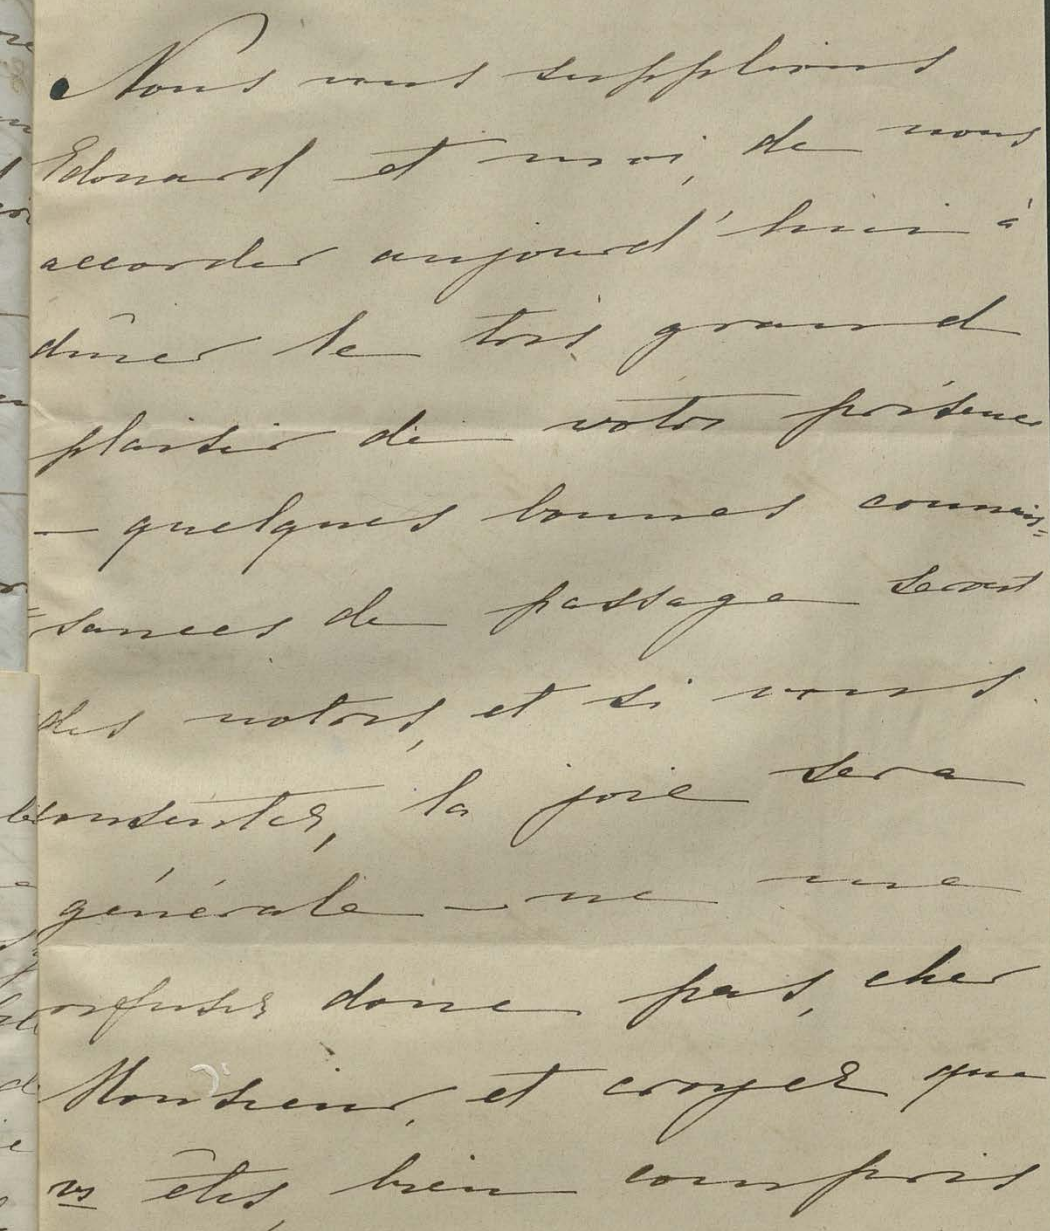 Nous vous supplions
Edouard et moi, de nous
accorder aujourd'hui à
dîner le très grand
plaisir de votre présence
— quelques bonnes connais=
=sances de passage seront
des notres, et si vous
consentez, la joie sera
générale — ne me
refusez donc pas, cher
Monsieur, et croyez que
vs êtes bien compris